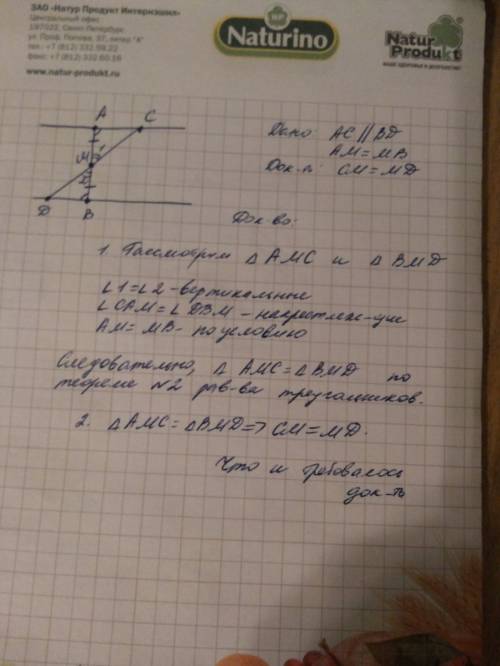 ЗАО «Натур Продукт Интернэшнл»
Центральный офис
197022, Санкт-Петербург,
ул. Проф. Попова, 37, литер "А"
тел.: +7 (812) 332 59 22
факс: +7 (812) 332 60 16
www.natur-produkt.ru
NP
Naturino
Natur
Produkt
A C
M 1
2
D B
Дано AC || BD
AM = MB
Док-ть CM = MD
Док-во:
1. Рассмотрим △ AMC и △ BMD
∠1 = ∠2 - вертикальные
∠CAM = ∠DBM - накрест леж-щие
AM = MB - по условию
Следовательно, △ AMC = △ BMD по
теореме №2 рав-ва треугольников.
2. △ AMC = △ BMD => CM = MD.
Что и требовалось
док-ть